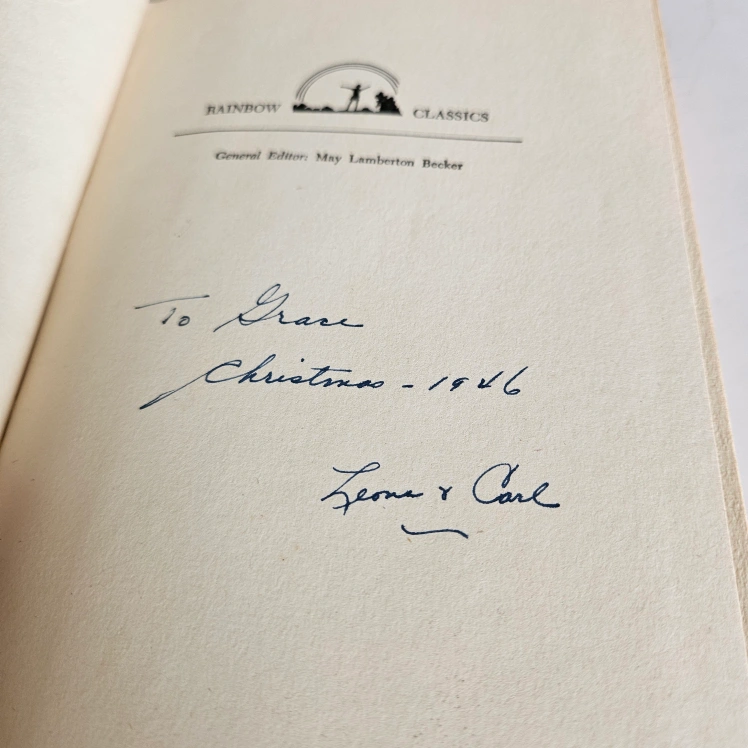 RAINBOW CLASSICS
General Editor: May Lamberton Becker
To Grace
Christmas - 1946
Leona & Carl